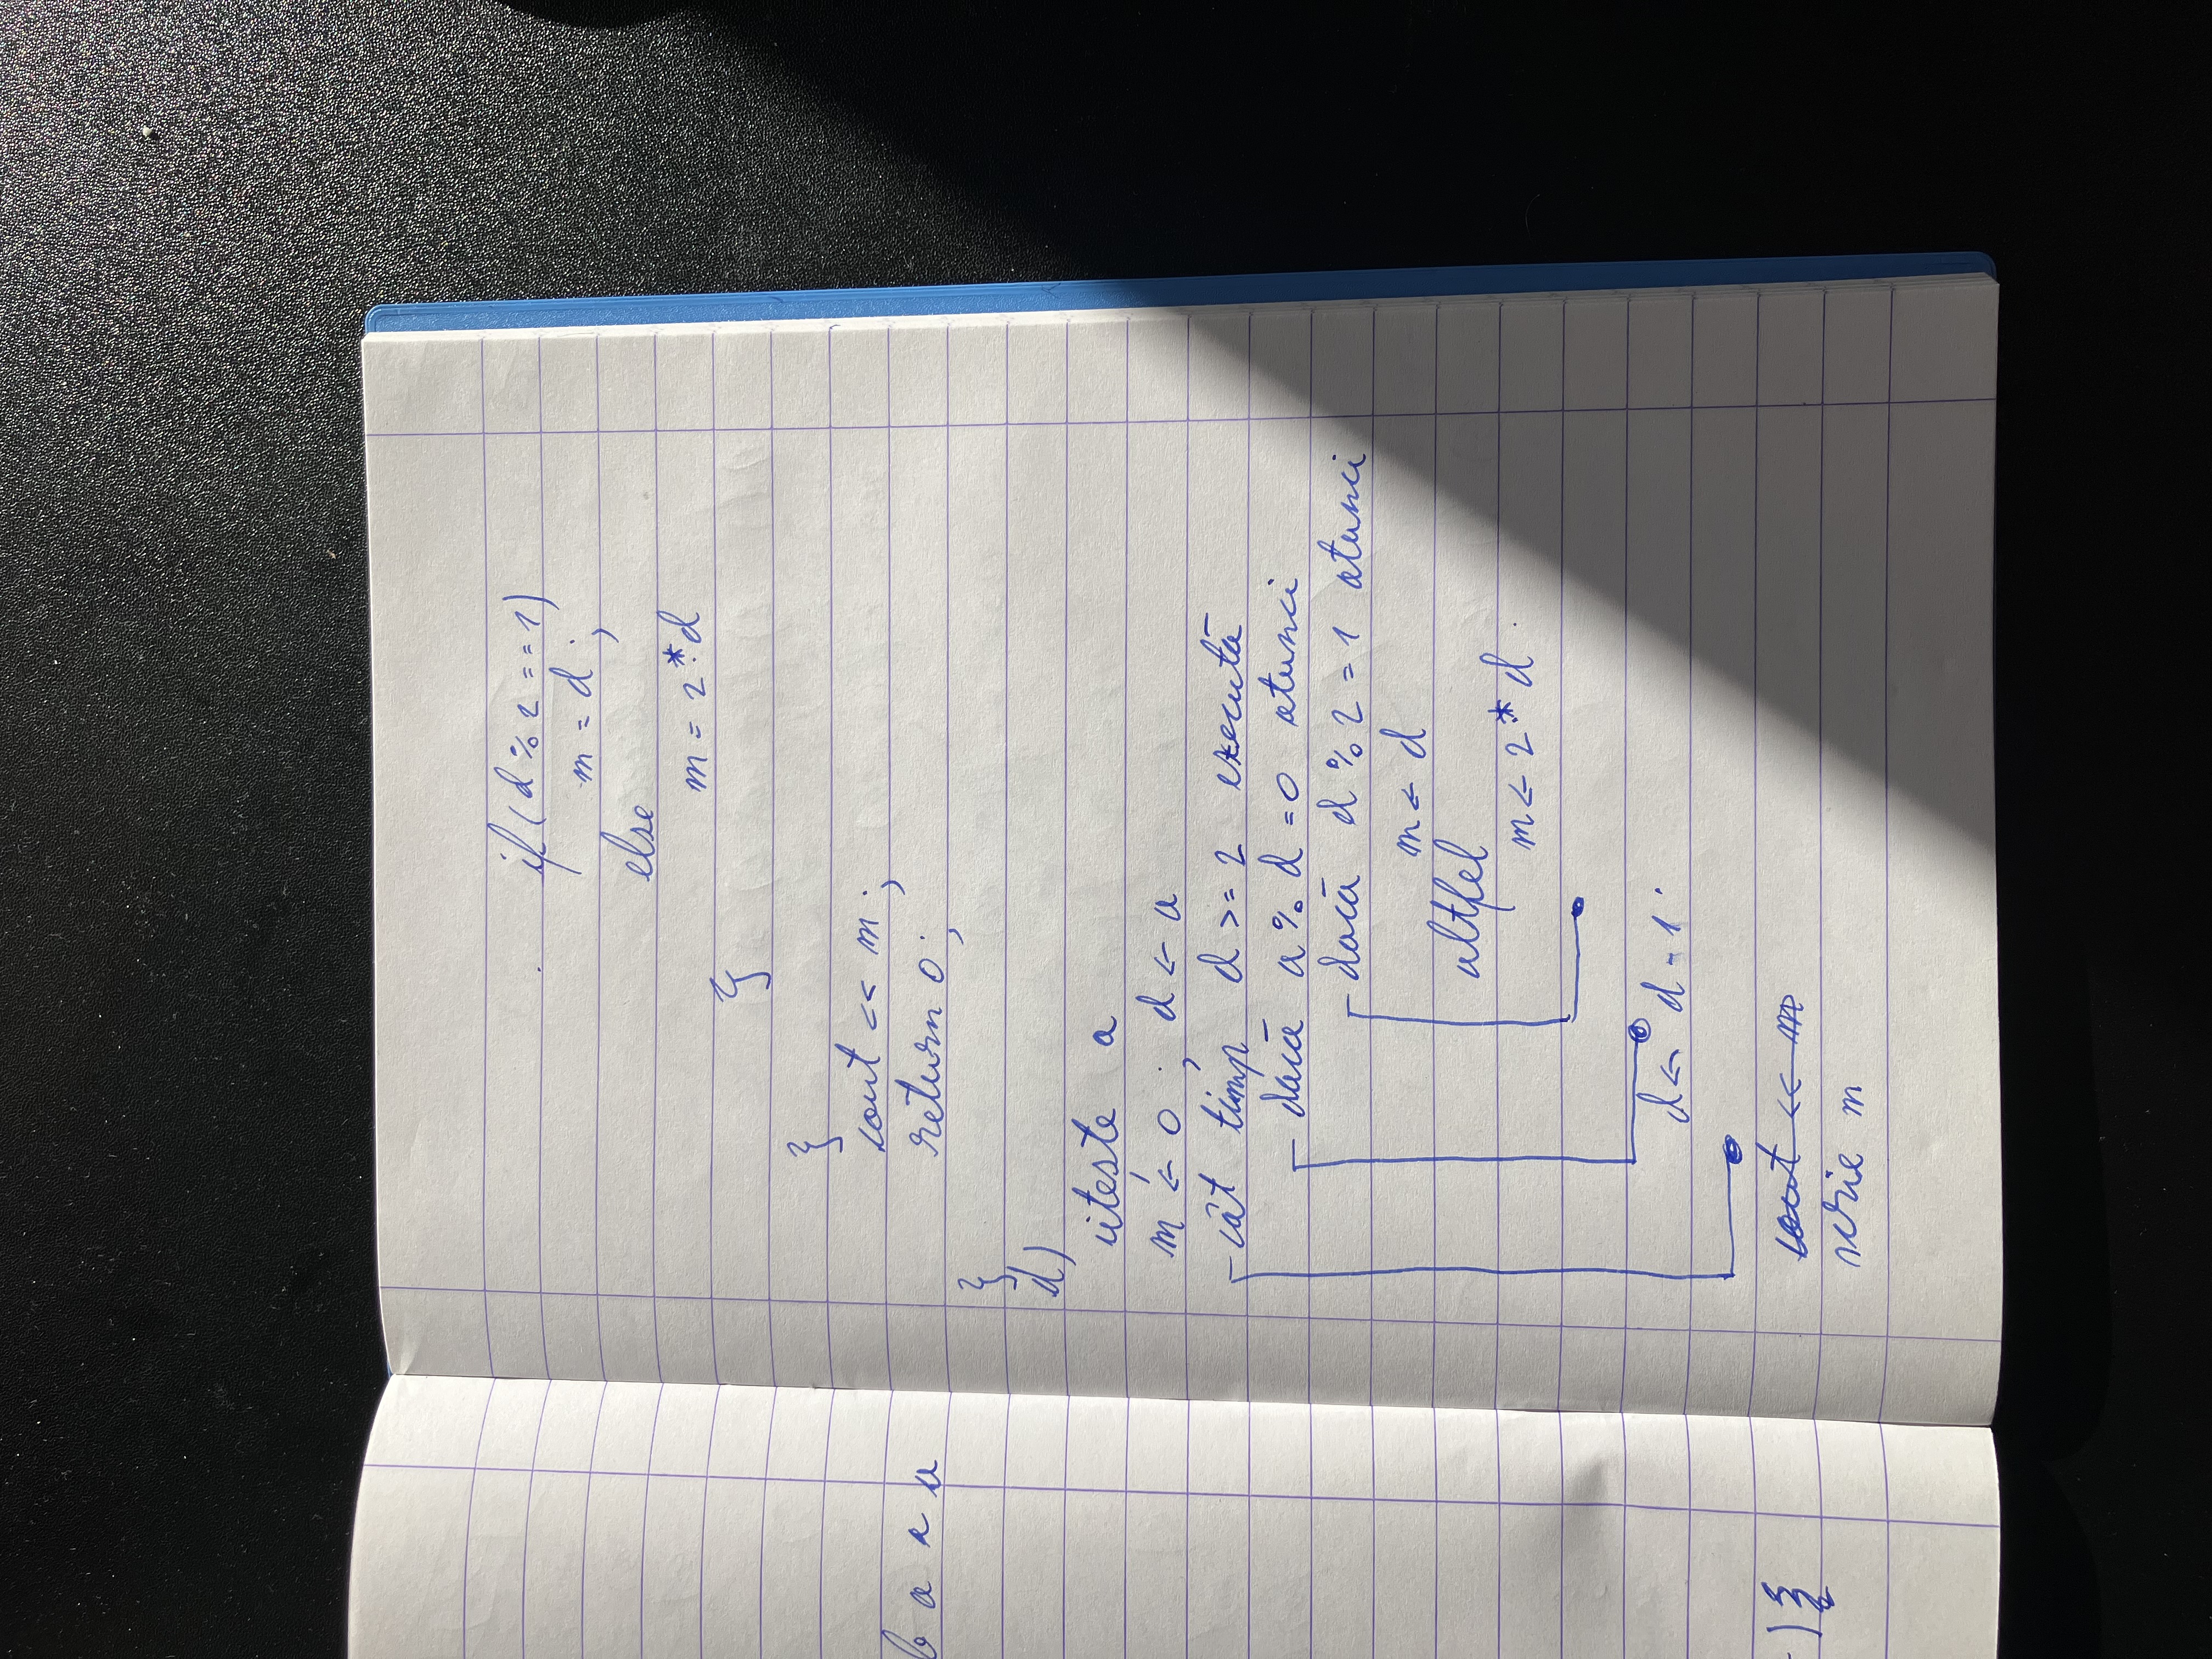 if(d%2==1)
m=d;
else
m=2*d
}
}
cout << m;
return 0;
}
d)
citește a
m ← 0; d ← a
cât timp d >= 2 execută
dacă a % d = 0 atunci
dacă d % 2 = 1 atunci
m ← d
altfel
m ← 2*d
d ← d - 1
cout << m
scrie m
b a r a
) {